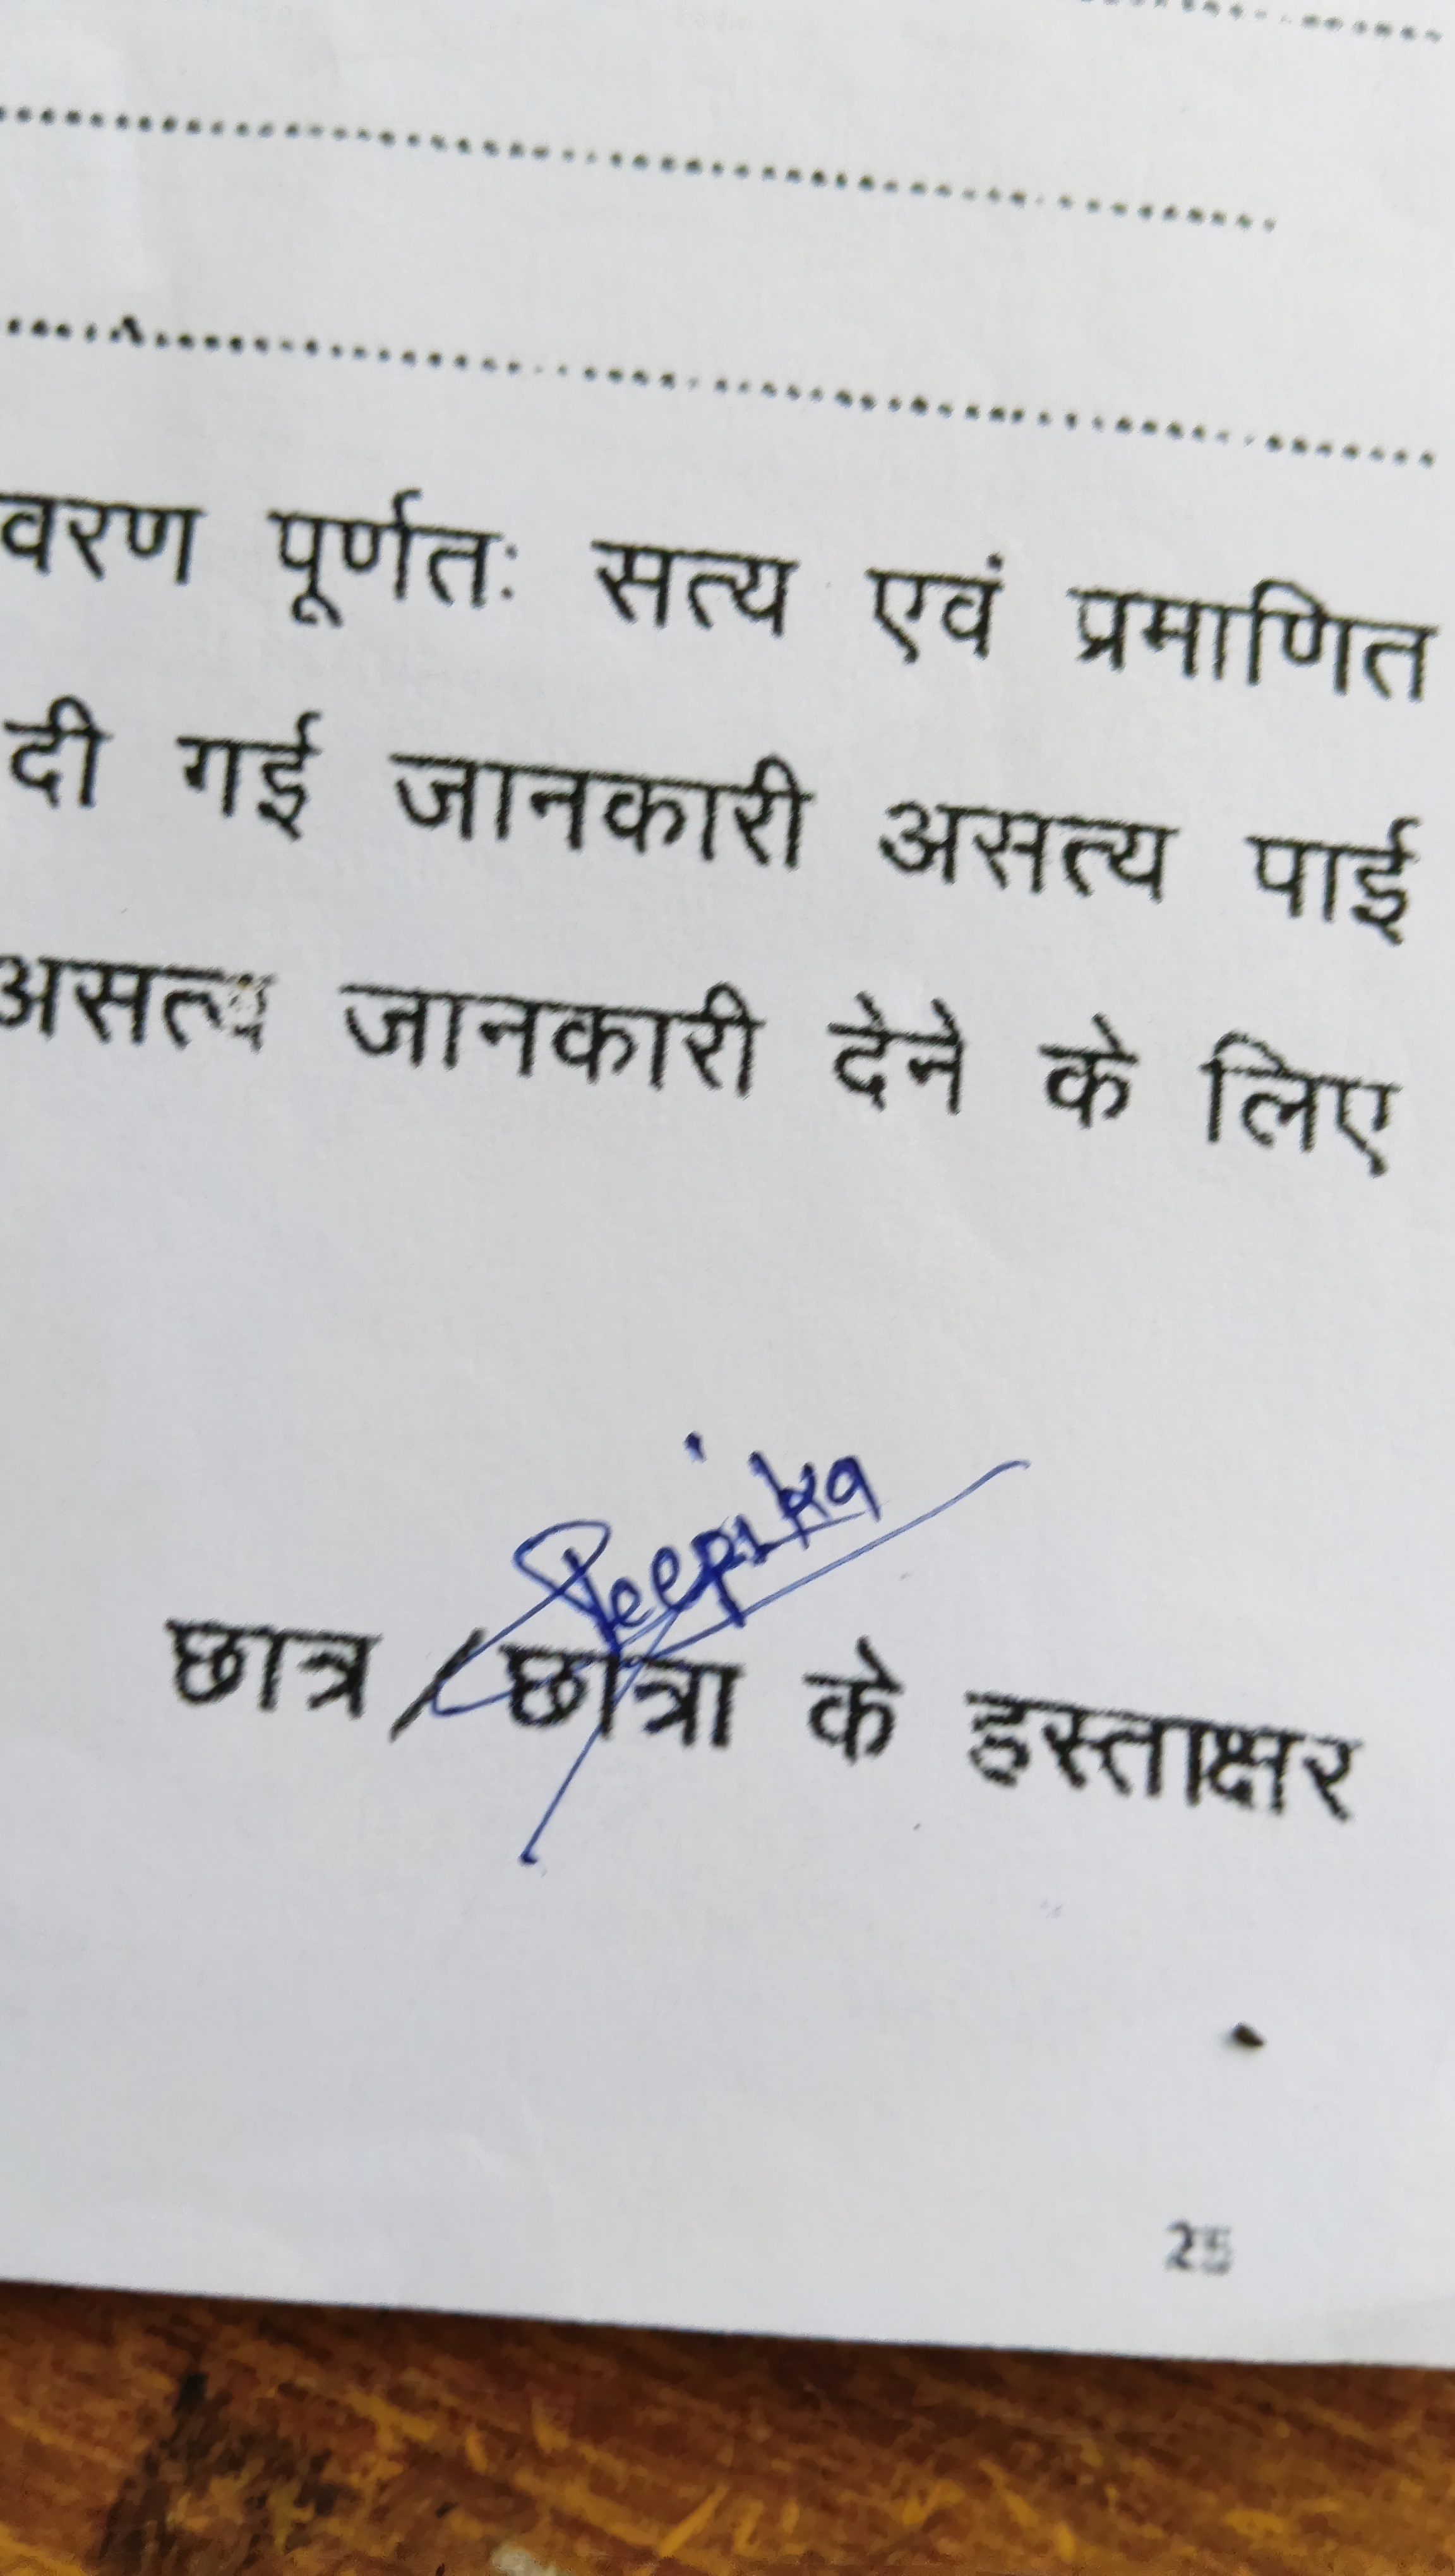 वरण पूर्णतः सत्य एवं प्रमाणित
दी गई जानकारी असत्य पाई
असत्य जानकारी देने के लिए
Deepika
छात्र / छात्रा के हस्ताक्षर
25